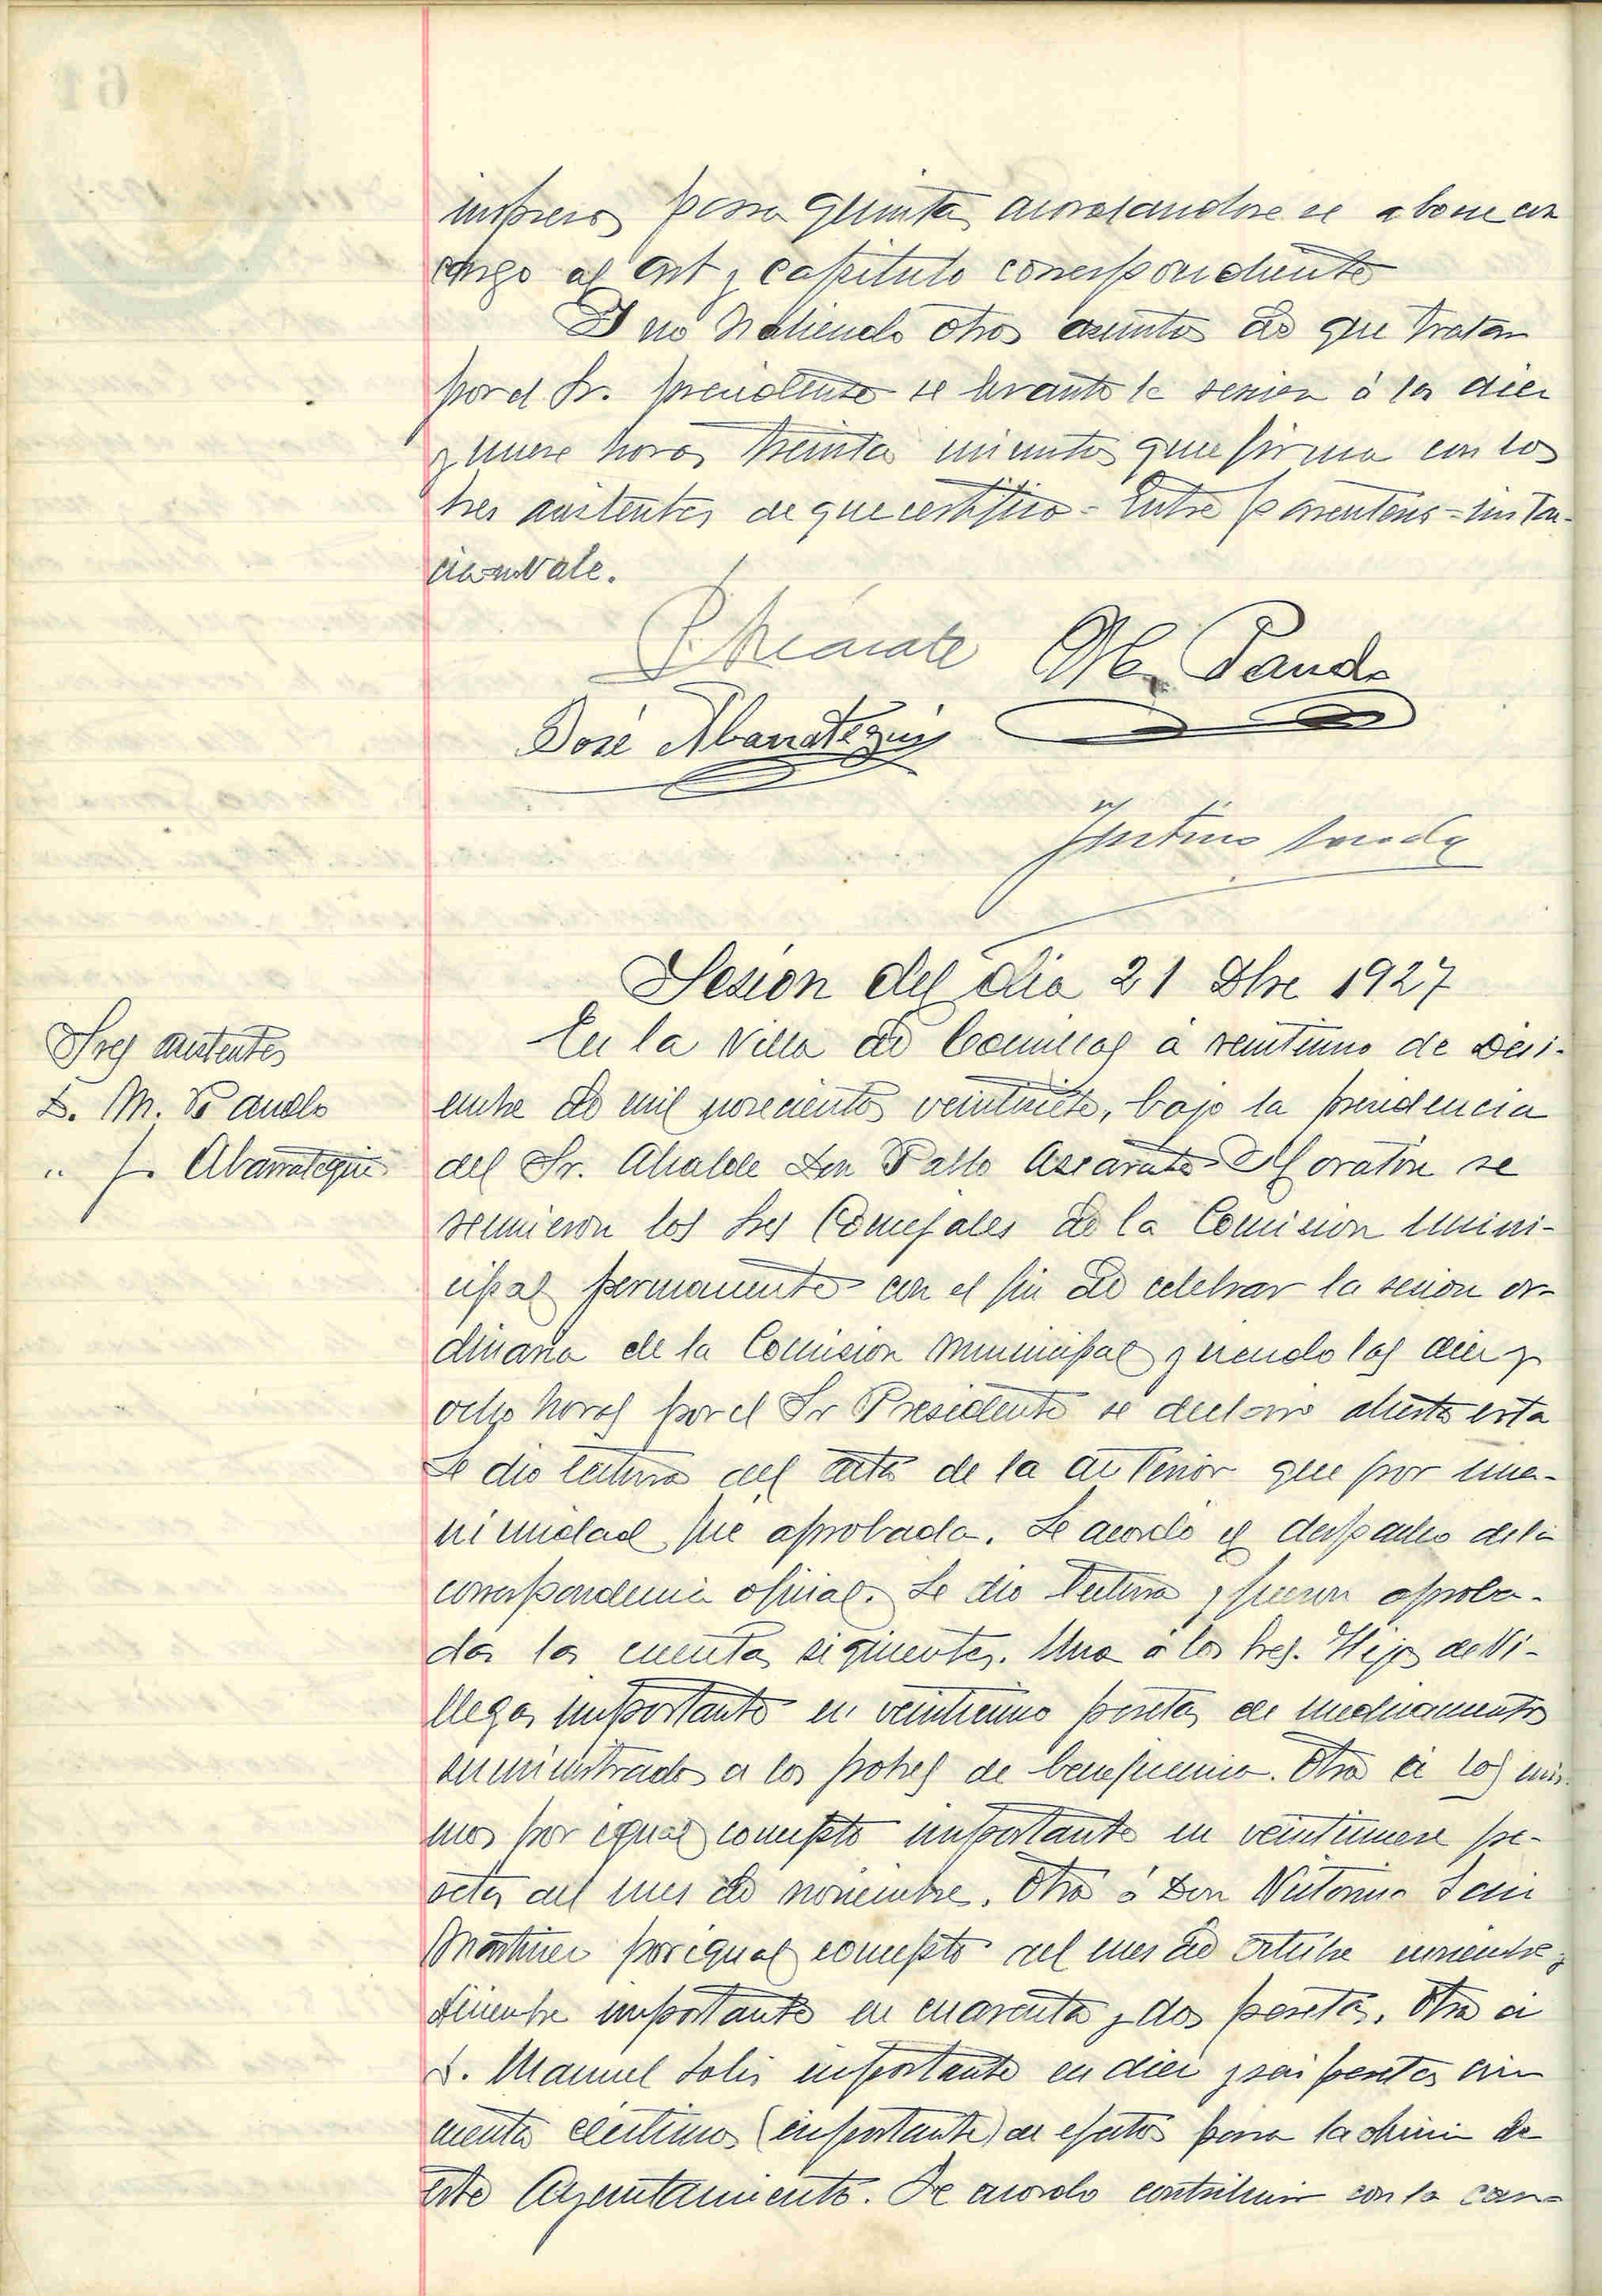 impresos para quinta acordandose se abone con
cargo al Art y capitulo correspondiente
Y no habiendo otros asuntos de que tratar
por el Sr. presidente se levanto la sesion á las diez
y nueve horas treinta minutos que firma con los
Sres asistentes de que certifico = Entre parentesis =
vale.
P. Azcarate M. Pando
José Abarrategui
Sesión del dia 21 Dbre 1927
Sres asistentes
D. M. Pando
" J. Abarrategui
En la Villa de Comillas á veintiuno de Dici-
embre de mil novecientos veintisiete, bajo la presidencia
del Sr. Alcalde Don Pablo Azcarate Moratón se
reunieron los Sres Concejales de la Comision Muni-
cipal permanente con el fin de celebrar la sesion or-
dinaria de la Comision Municipal y siendo las diez y
ocho horas por el Sr Presidente se declaro abierta esta
Se dio lectura del acta de la anterior que por una-
nimidad fué aprobada. Se acordó el despacho de la
correspondencia oficial. Se dio lectura y fueron aproba-
das las cuentas siguientes. Una á los Sres. Hijos de Vi-
llegas importante en pesetas de medicamentos
suministrados a los pobres de beneficencia. Otra á los mis-
mos por igual concepto importante en veintinueve pe-
setas del mes de noviembre. Otra á Don
Martinez por igual concepto del mes de octubre noviembre y
diciembre importante en cuarenta y dos pesetas. Otra á
D. Manuel Solis importante en diez y seis pesetas cin
cuenta céntimos (importante) de efectos para la oficina de
este Ayuntamiento. Se acordo contribuir con la can-